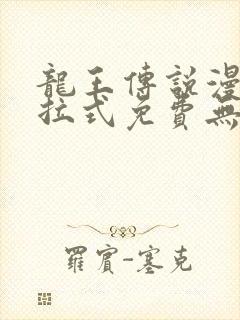 龍王傳說漫
拉式免費無
羅賓-塞克